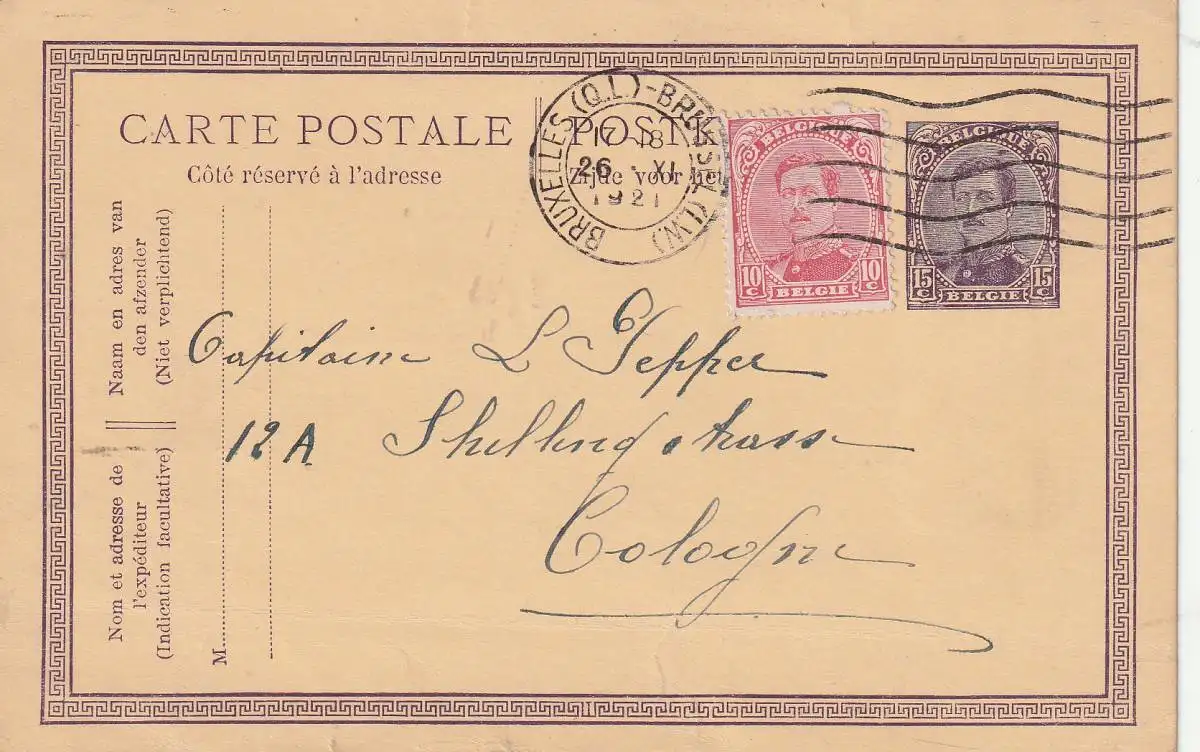 CARTE POSTALE
POST
Côté réservé à l'adresse
Zijde voor he
BRUXELLES (Q.L.) - BRUSSEL (L.W.)
17-18
26 · XI
1921
BELGIQUE
10 C 10 C
BELGIE
BELGIQUE
15 C 15 C
BELGIE
Naam en adres van
den afzender
(Niet verplichtend)
Nom et adresse de
l'expéditeur
(Indication facultative)
M.
Capitaine L Gepper
12A Shellingstrasse
Cologne